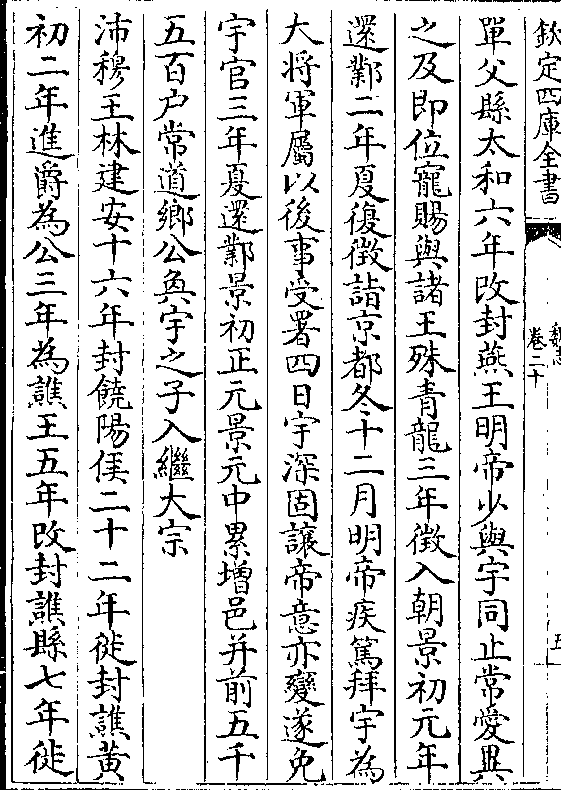 欽定四庫全書
魏志
卷二十
五
單父縣太和六年改封燕王明帝少與宇同止常愛異
之及即位寵賜與諸王殊青龍三年徵入朝景初元年
還鄴二年夏復徵詣京都冬十二月明帝疾篤拜宇為
大將軍屬以後事受署四日宇深固讓帝意亦變遂免
宇官三年夏還鄴景初正元景元中累增邑并前五千
五百户常道鄉公奐宇之子入繼大宗
沛穆王林建安十六年封饒陽侯二十二年徙封譙黄
初二年進爵為公三年為譙王五年改封譙縣七年徙